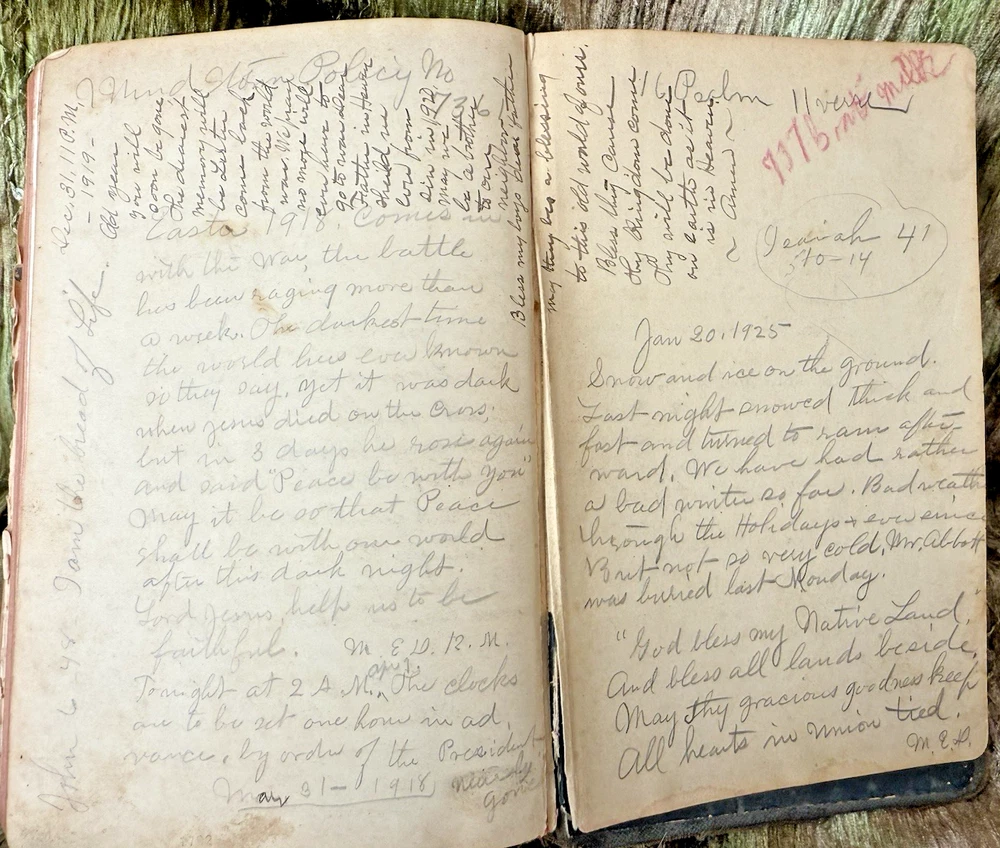 Mind Item Policy No
738
Dec. 31, 11 P.M.
- 1919 -
Old year
you will
soon be gone
The dearest
memory will
be Lester
come back
from the world
war. We may
no more will
ever hear to
go to war dear
Father in Heaven
Shield us
from
sin in 1920
May we
be a brother
to our
neighbor
Bless my boys dear father
may they be a blessing
to this old world of ours.
Bless thy Cause
Thy Kingdom come
Thy will be done
on earth as it
is in Heaven.
~ Amen ~
John 6-48- I am the bread of Life.
Easter 1918. Comes in
with the War, the battle
has been raging more than
a week. The darkest time
the world has ever known
so they say, yet it was dark
when Jesus died on the Cross,
but in 3 days he rose again
and said "Peace be with you"
May it be so that Peace
shall be with our world
after this dark night.
Lord Jesus, help us to be
faithful. M. E. D. R. M.
Tonight at 2 A.M., The clocks
are to be set one hour in ad,
vance, by order of the President
May 31- 1918, nearly
gone
16 Psalm 11 verse
7376
Isaiah 41
10-14
Jan 20, 1925
Snow and ice on the ground.
Last night snowed thick and
fast and turned to rain after-
ward. We have had rather
a bad winter so far. Bad weath
through the Holidays + ever since
But not so very cold, Mr. Abbott
was buried last Monday.
"God bless my Native Land,
And bless all lands beside,
May Thy gracious goodness keep
All hearts in union tied.
M. E. D.